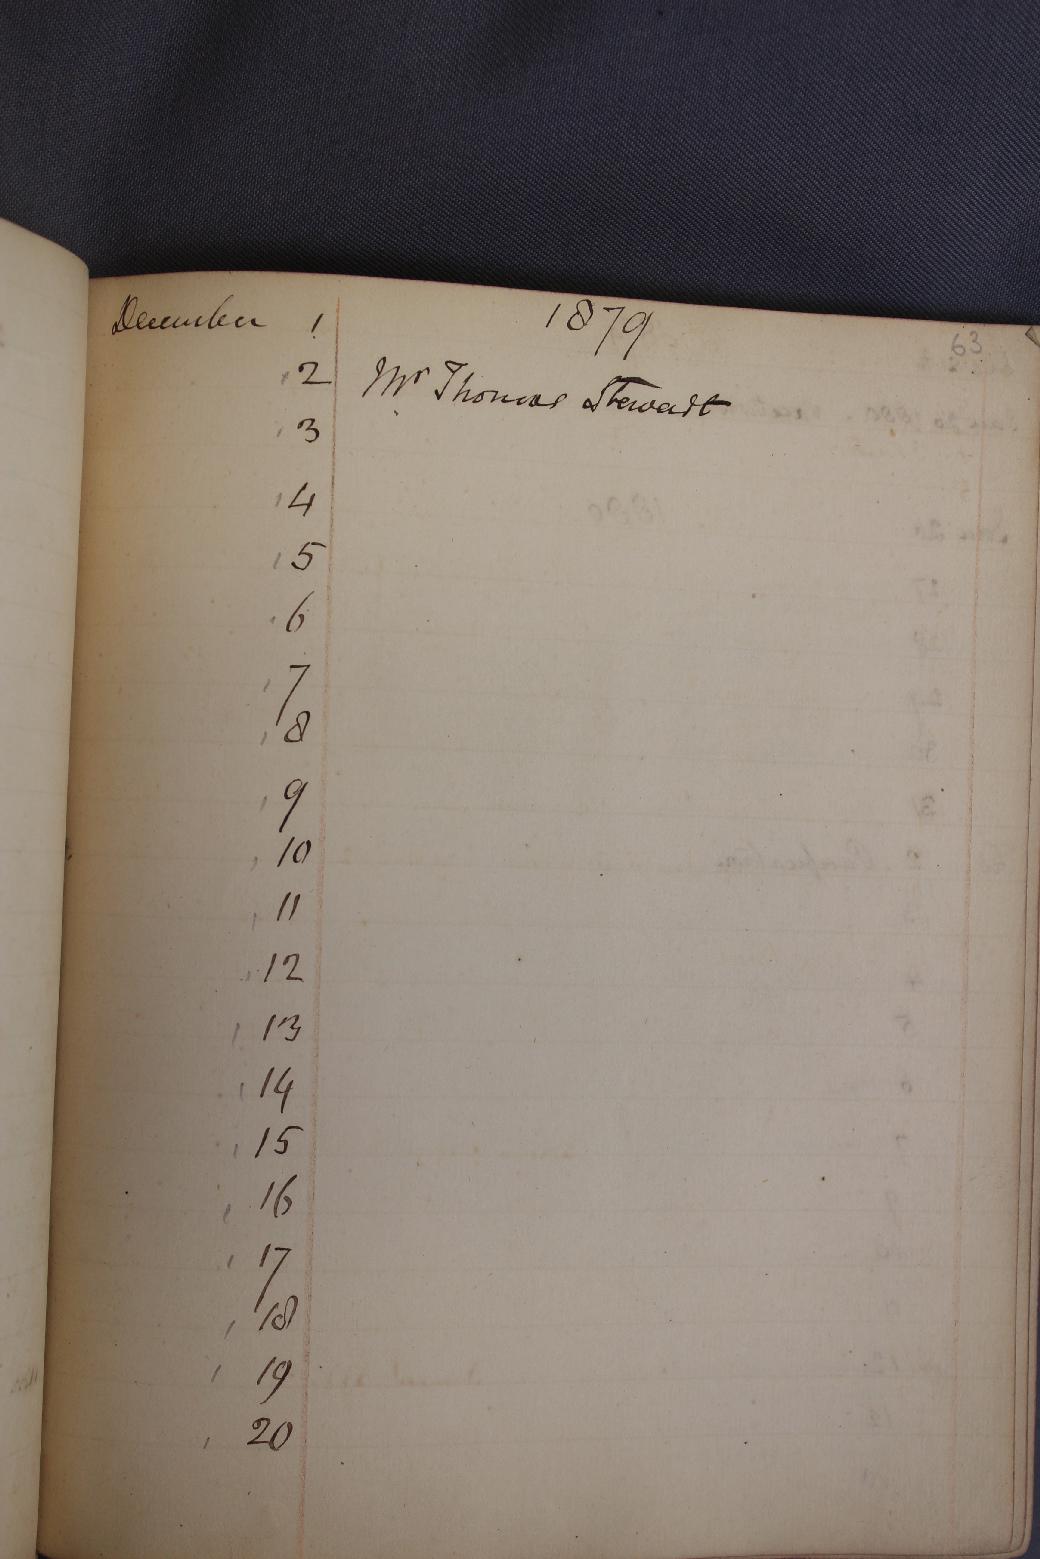 1879
63
December 1
" 2 Mr Thomas Stewart
" 3
" 4
" 5
" 6
" 7
" 8
" 9
" 10
" 11
" 12
" 13
" 14
" 15
" 16
" 17
" 18
" 19
" 20